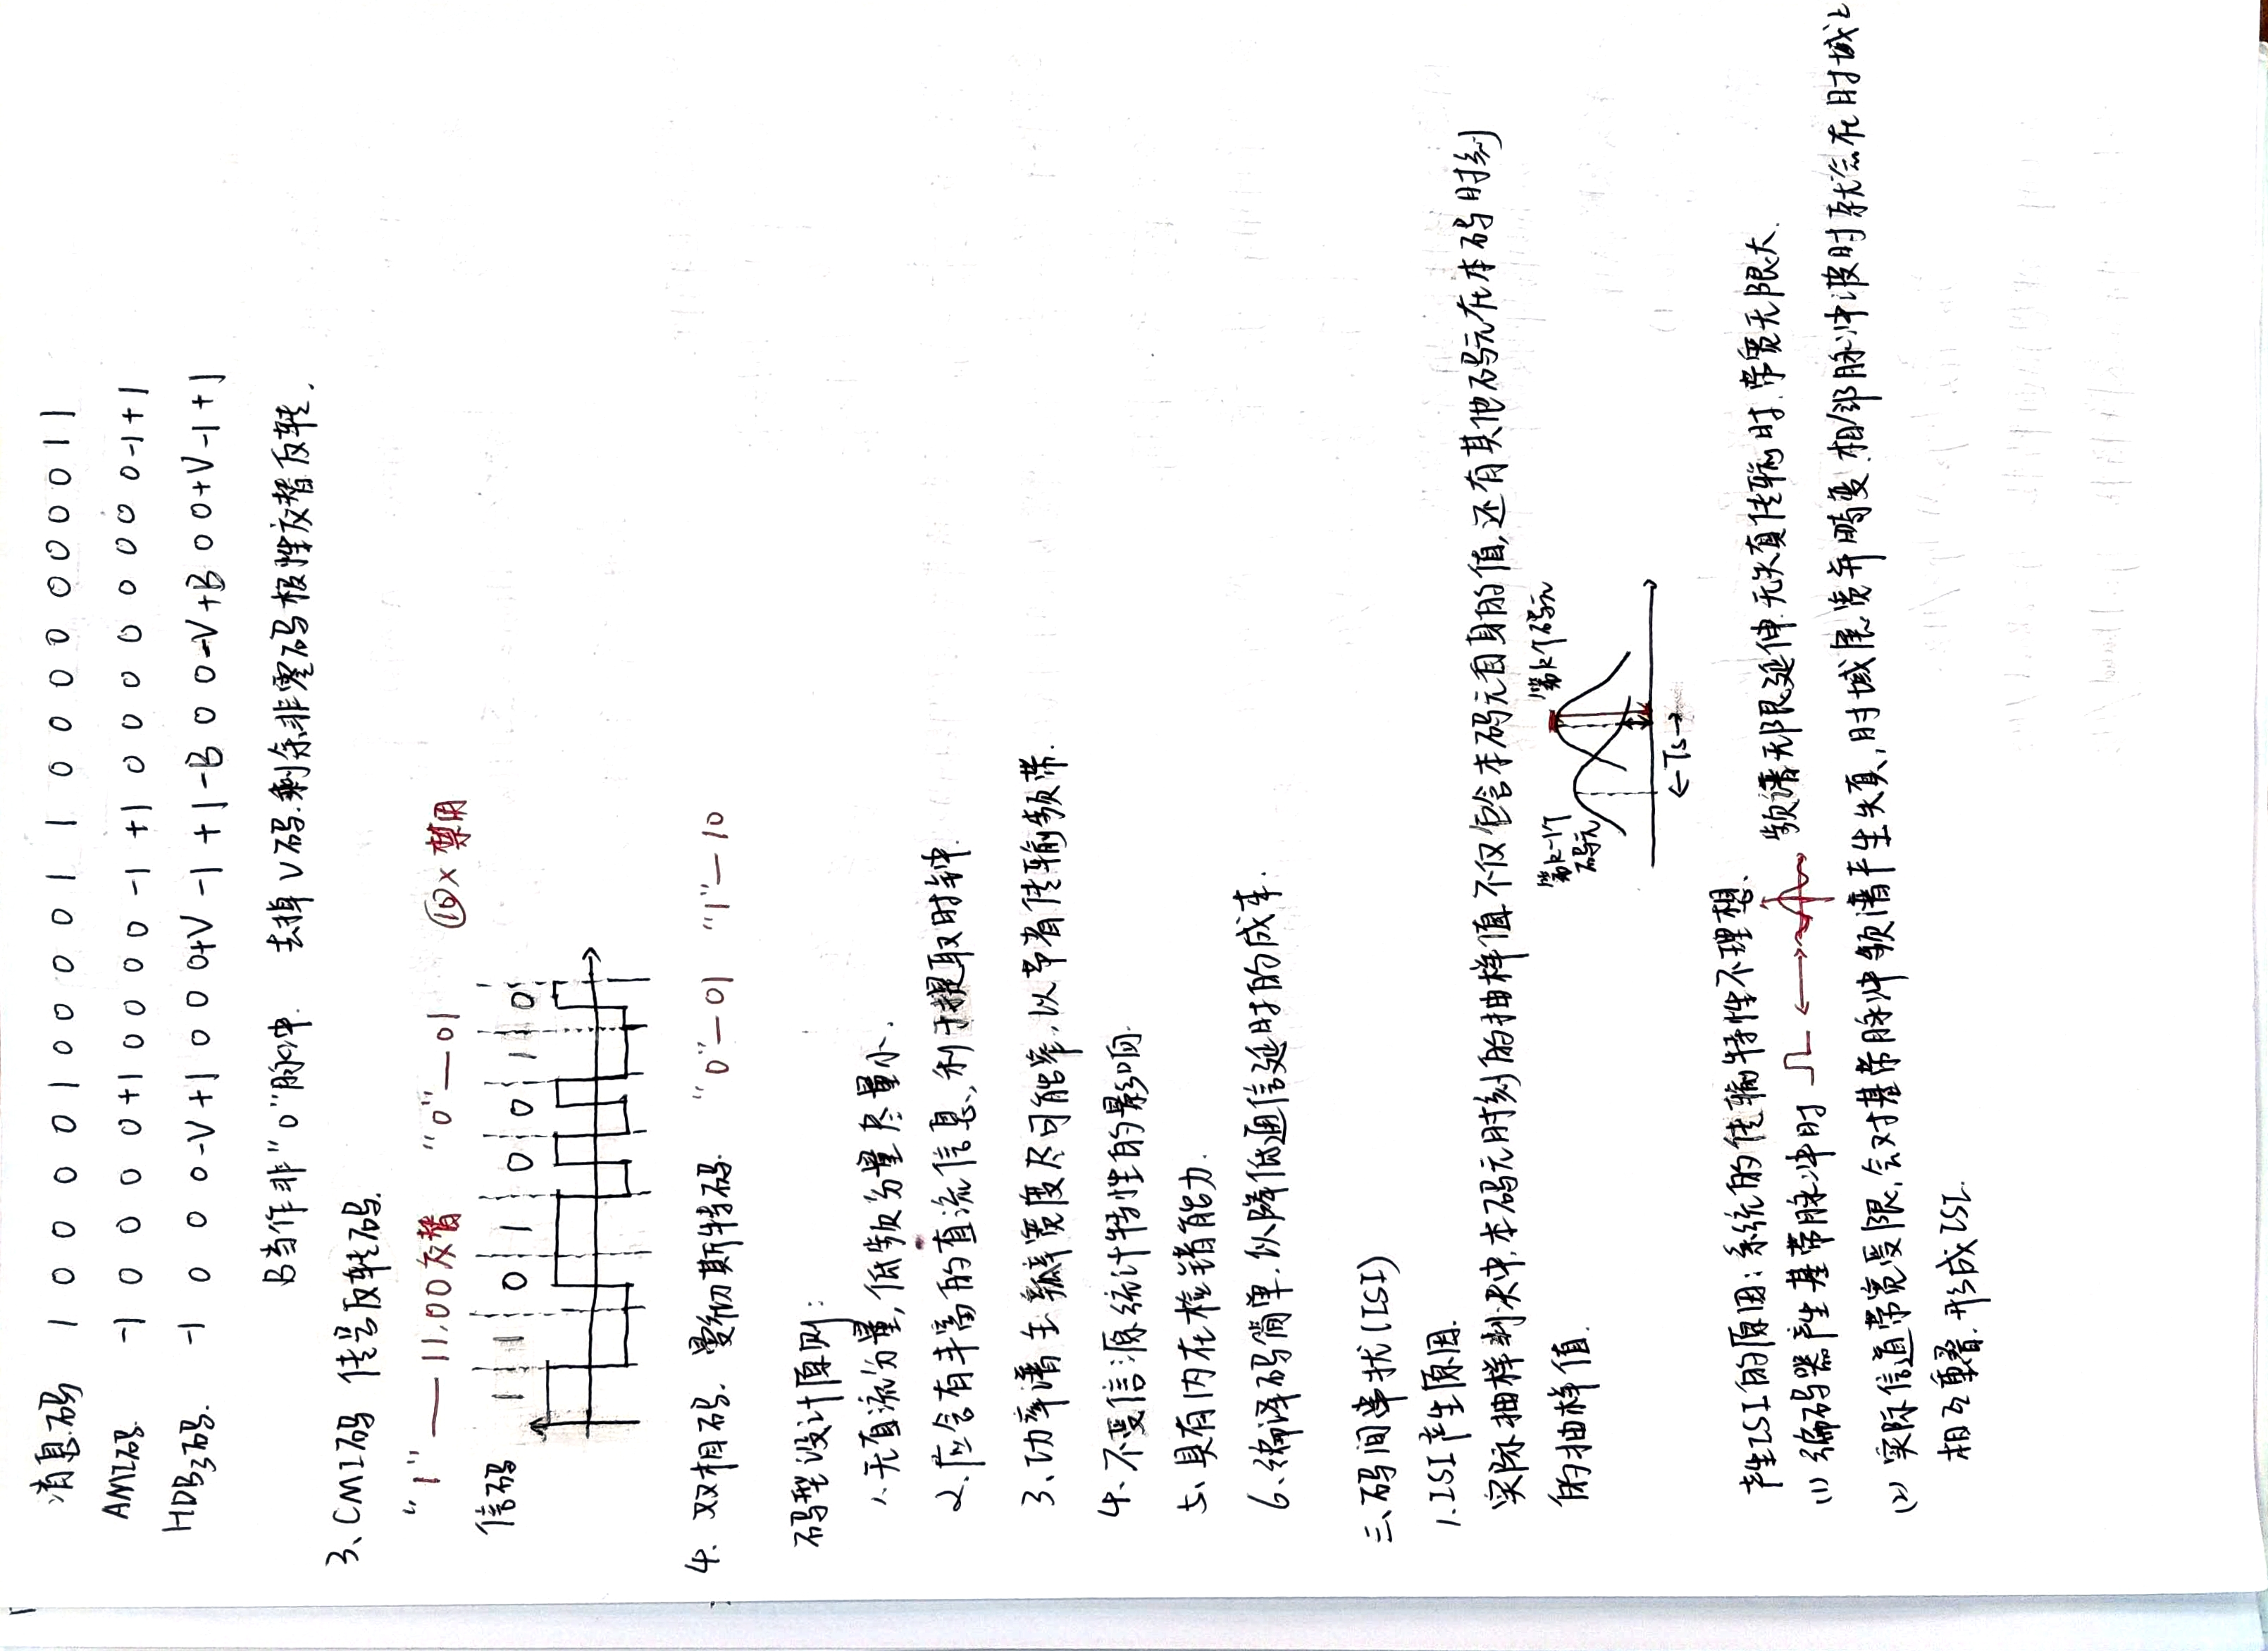 消息码 1 0 0 0 0 1 0 0 0 0 1 1 0 0 0 0 0 0 0 0 1 1
AMI码. -1 0 0 0 0 +1 0 0 0 0 -1 +1 0 0 0 0 0 0 0 0 -1 +1
HDB3码. -1 0 0 0 -V +1 0 0 0 +V -1 +1 -B 0 0 -V +B 0 0 +V -1 +1
B当作非"0"脉冲. 去掉V码.剩余非零码极性交替反转.
3、CMI码 传号反转码.
"1"—11,00交替 "0"—01 ⑩× 禁用
信码 1 1 0 1 0 0 1 0
4. 双相码. 曼彻斯特码. "0"—01 "1"—10
码型设计原则:
1.无直流分量,低频分量尽量小.
2.应含有丰富的直流信息,利于提取时钟.
3、功率谱主瓣宽度尽可能窄,以节省传输频带.
4、不受信源统计特性的影响.
5、具有内在检错能力.
6、编译码简单.以降低通信延时的成本.
三、码间串扰(ISI)
1.ISI产生原因.
实际抽样判决中,本码元时刻的抽样值不仅包含本码元自身的值,还有其他码元在本码时刻
的抽样值.
第k-1个
码元
第k个码元
←Ts→
产生ISI的原因:系统的传输特性不理想.
(1) 编码器产生基带脉冲时 频谱无限延伸.无失真传输时.带宽无限大.
(2) 实际信道带宽受限,会对基带脉冲频谱产生失真,时域展宽并畸变.相邻脉冲波时就会在时域上
相互重叠.形成ISI.